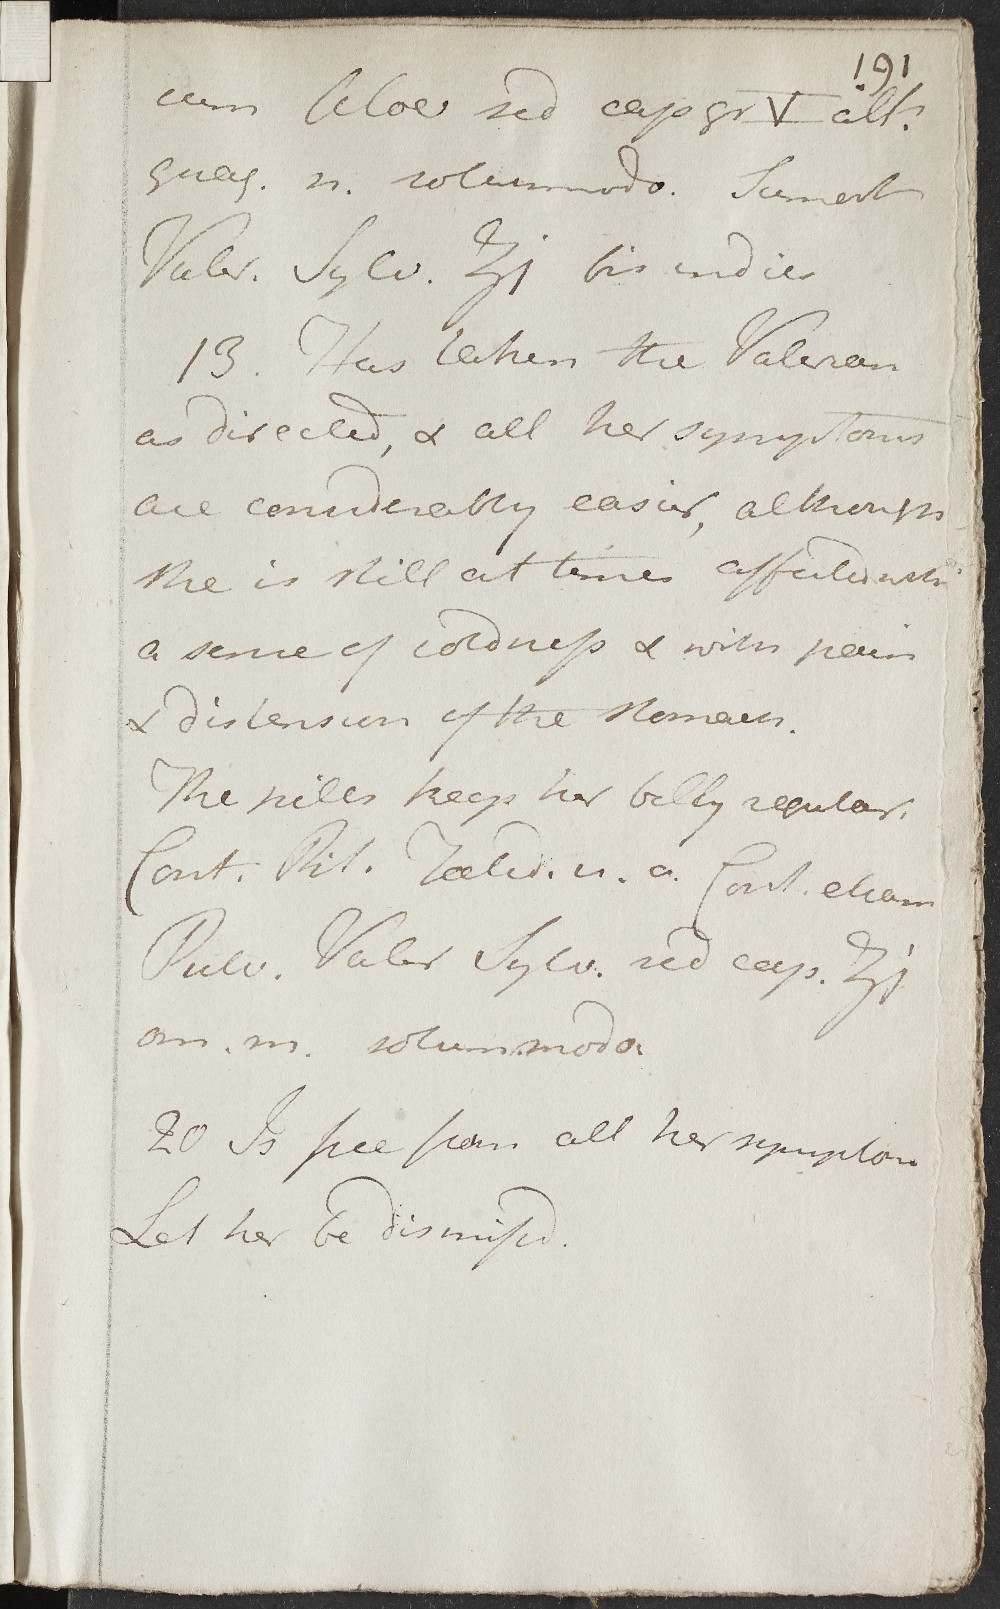 191
cum Aloe sed cap gr V alt.
quaq. n. solummodo. Sumert
Valer. Sylv. ʒj bis indies
13. Has taken the Valerean
as directed, & all her symptoms
are considerably easier, although
she is still at times affected with
a sense of coldness & with pain
& distension of the stomach.
The pills keep her belly regular.
Cont. Pil. Foetid. u. a. Cont. etiam
Pulv. Valer Sylv. sed cap. ʒj
om. m. solummodo.
20 Is free from all her symptom
Let her be dismissd.